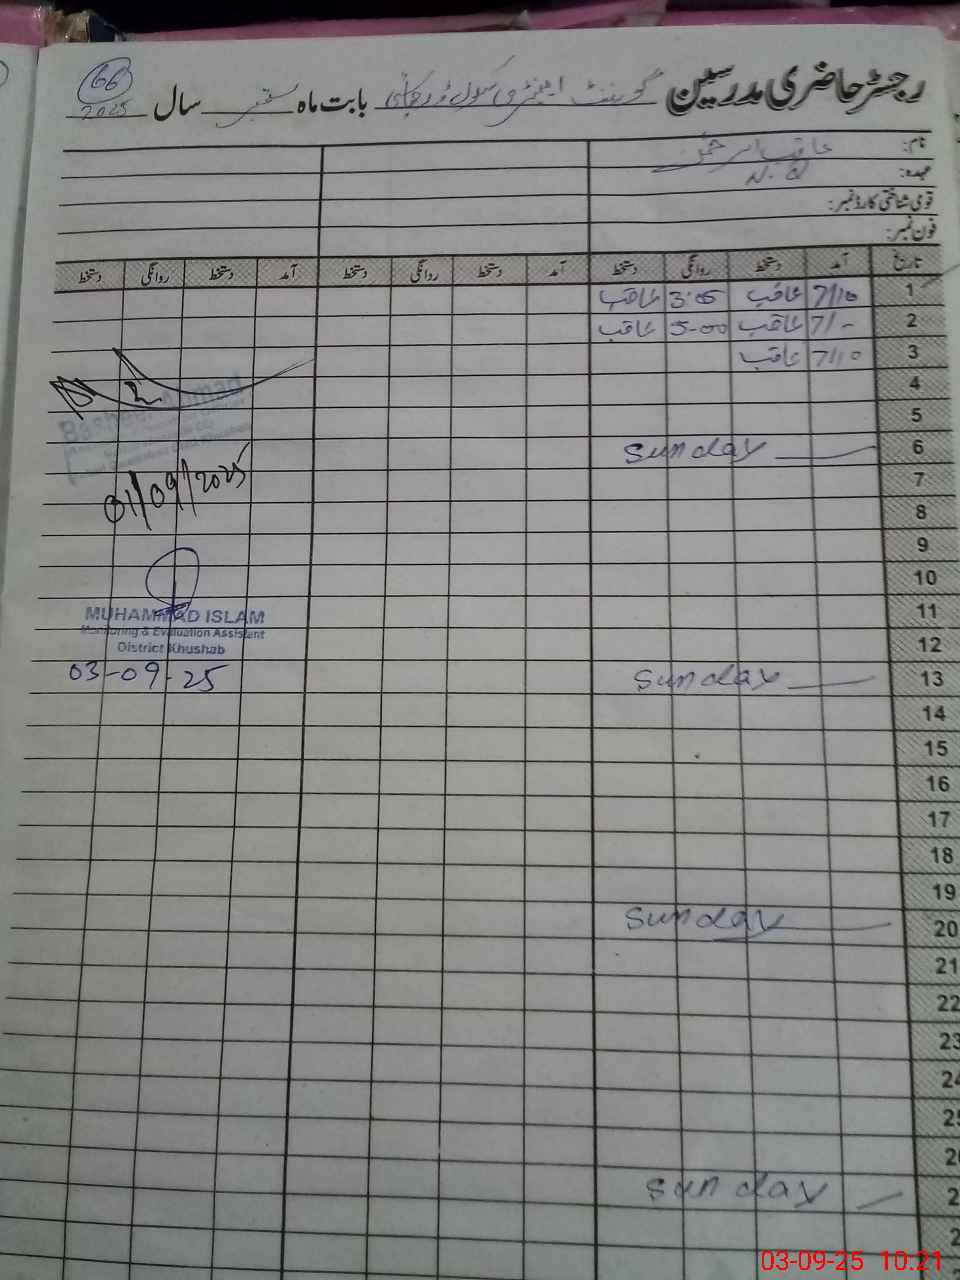 66
رجسٹر حاضری مدرسین گورنمنٹ ایلیمنٹری سکول بابت ماہ ستمبر سال 2025
نام: عاقب الرحمٰن
عہدہ: N.Q
قومی شناختی کارڈ نمبر:
فون نمبر:
تاریخ آمد دستخط روانگی دستخط آمد دستخط روانگی دستخط آمد دستخط روانگی دستخط
1 7/10 عاقب 3:05 عاقب
2 7/- عاقب 5-00 عاقب
3 7/10 عاقب
4
Basheer Ahmad
5
6 Sunday
7
01/09/2025
8
9
10
11
MUHAMMAD ISLAM
Monitoring & Evaluation Assistent
12
District Khushab
13 Sunday
03-09-25
14
15
16
17
18
19
20 Sunday
21
22
23
24
25
26
2 Sunday
2
03-09-25 10:21